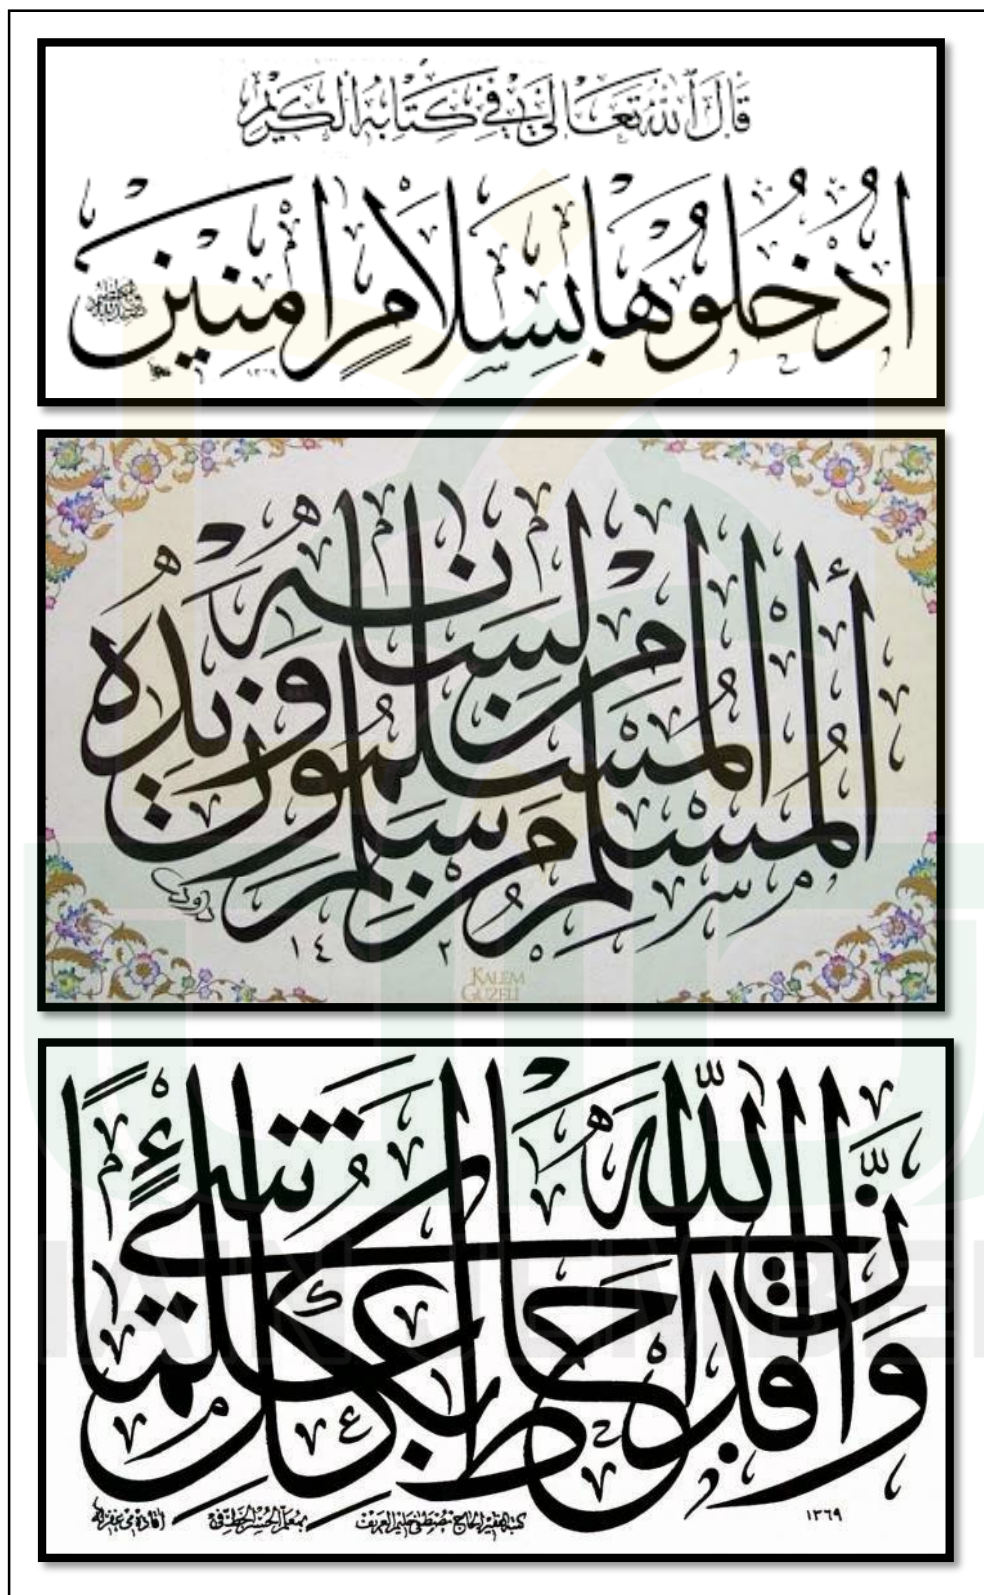 قَالَ اللّٰهُ تَعَالٰى فِي كِتَابِهِ الْكَرِيْمِ
اُدْخُلُوهَا بِسَلَامٍ اٰمِنِينَ
أَلْمُسْلِمُ مَنْ سَلِمَ الْمُسْلِمُونَ مِنْ لِسَانِهِ وَيَدِهِ
KALEM
GÜZELİ
وَاَنَّ اللّٰهَ قَدْ اَحَاطَ بِكُلِّ شَيْءٍ عِلْمًا
١٣٦٩
IAIN JEMBER